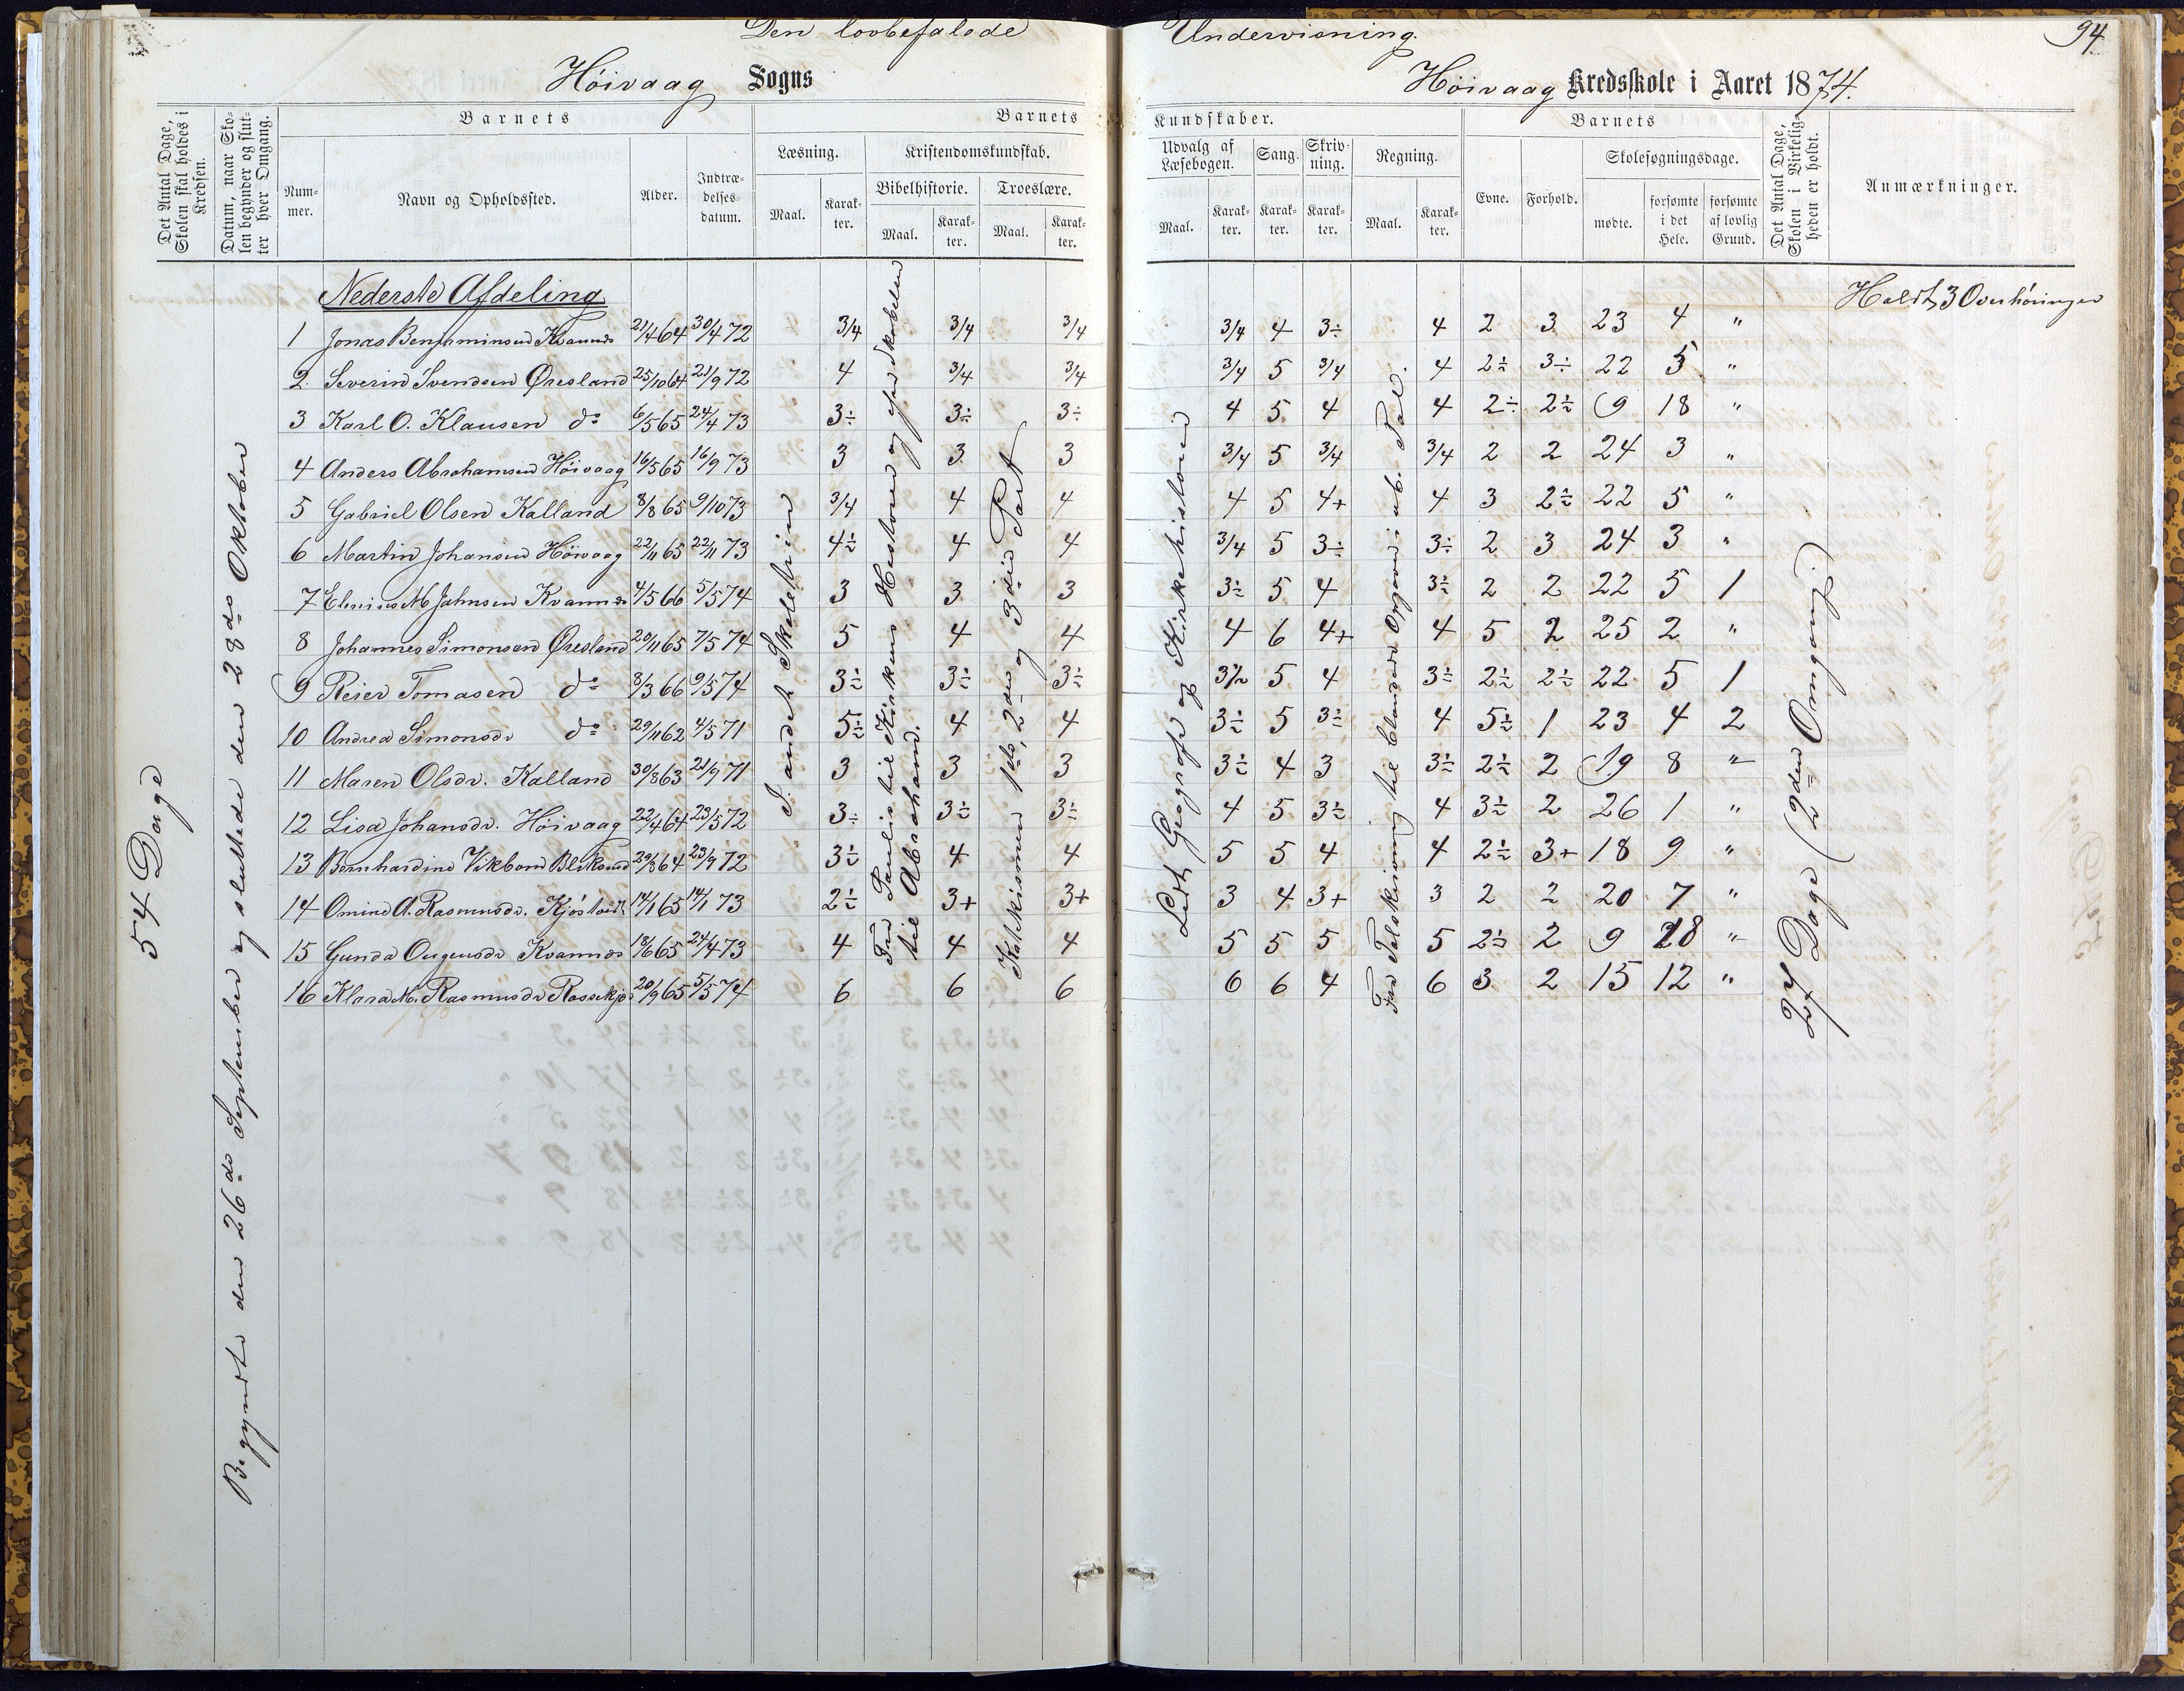 Den lovbefalede Undervisning. 94
Høivaag Sogns Høivaag Kredsskole i Aaret 1874.
Det Antal Dage, Skolen skal holdes i Kredsen.
Datum, naar Skolen begynder og slutter hver Omgang.
Barnets
Nummer. Navn og Opholdssted. Alder. Indtrædelsesdatum.
Barnets Kundskaber.
Læsning. Maal. Karakter.
Kristendomskundskab.
Bibelhistorie. Maal. Karakter.
Troeslære. Maal. Karakter.
Udvalg af Læsebogen. Maal. Karakter.
Sang. Karakter.
Skrivning. Karakter.
Regning. Maal. Karakter.
Barnets
Evne. Forhold.
Skolesøgningsdage.
mødte. forsømte i det Hele. forsømte af lovlig Grund.
Det Antal Dage, Skolen i Virkeligheden er holdt.
Anmærkninger.
54 Dage
Begyndte den 26de September og sluttede den 28de Oktober
Nederste Afdeling
Holdt 3 Overhøringer
1 Jonas Benjaminsen 21/4 64 30/4 72 3/4 3/4 3/4 3/4 4 3÷ 4 2 3 23 4 "
2. Severin Svendsen Øresland 25/10 64 21/9 72 4 3/4 3/4 3/4 5 3/4 4 2÷ 3÷ 22 5 "
3 Karl O. Klausen do 6/5 65 24/4 73 3÷ 3÷ 3÷ 4 5 4 4 2÷ 2÷ 9 18 "
4 Anders Abrahamsen Høivaag 16/5 65 16/9 73 3 3 3 3/4 5 3/4 3/4 2 2 24 3 "
5 Gabriel Olsen Kalland 8/8 65 9/10 73 3/4 4 4 4 5 4+ 4 3 2÷ 22 5 "
6 Martin Johansen Høivaag 22/11 65 22/11 73 4÷ 4 4 3/4 5 3÷ 3÷ 2 3 24 3 "
7 4/5 66 5/5 74 3 3 3 3÷ 5 4 3÷ 2 2 22 5 1
8 Johannes Simonsen Øresland 20/11 65 7/5 74 5 4 4 4 6 4+ 4 5 2 25 2 "
9 Reier Tomasen do 8/3 66 9/5 74 3÷ 3÷ 3÷ 5 4 3÷ 2÷ 2÷ 22 5 1
10 Andrea Simonsdr do 29/11 62 4/5 71 5÷ 4 4 3÷ 5 3÷ 4 5÷ 1 23 4 2
11 Maren Olsdr. Kalland 30/8 63 21/9 71 3 3 3 3÷ 4 3 3÷ 2÷ 2 19 8 "
12 Lisa Johansdr. Høivaag 22/4 64 23/5 72 3÷ 3÷ 3÷ 4 5 3÷ 4 3÷ 2 26 1 "
13 Bernhardine Vikbom 29/8 64 23/9 72 3÷ 4 4 5 5 4 4 2÷ 3+ 18 9 "
14 Omine A. Rasmusdr. 14/1 65 14/1 73 2÷ 3+ 3+ 3 4 3+ 3 2 2 20 7 "
15 Gunda 18/6 65 24/4 73 4 4 4 5 5 5 5 2÷ 2 9 18 "
16 Klara M. Rasmusdr 20/9 65 5/5 74 6 6 6 6 6 4 6 3 2 15 12 "
I andet Skoletrin
Fra Paulus til Kirkens Historie og fra Skabelsen
til Abraham.
Katekismen 1ste, 2den og 3die Part
Lidt Geografi og Kirkehistorie
Fra Talskrivning til blandede Opgaver i ub. Tal.
27 Dage (2den Omgang.)